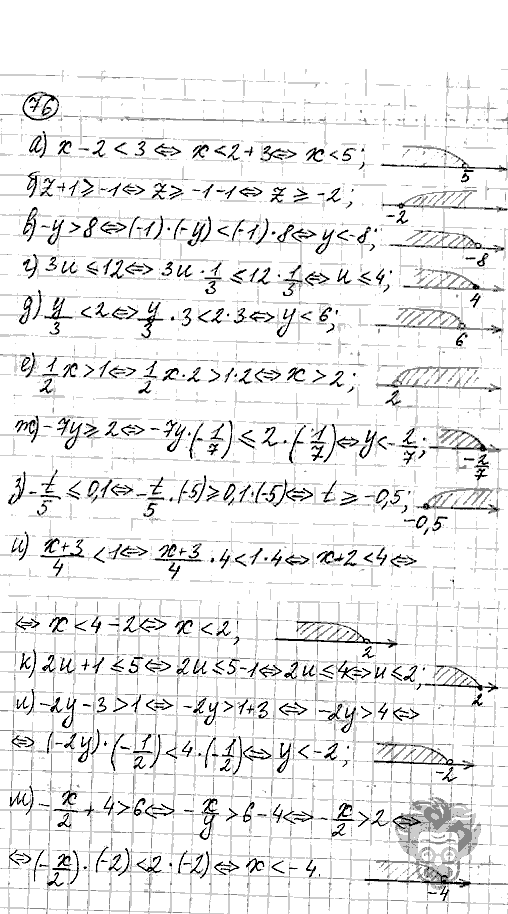 76
а) x - 2 < 3 ⇔ x < 2 + 3 ⇔ x < 5; 5
б) z + 1 ≥ -1 ⇔ z ≥ -1 - 1 ⇔ z ≥ -2; -2
в) -y > 8 ⇔ (-1)·(-y) < (-1)·8 ⇔ y < -8; -8
г) 3u ≤ 12 ⇔ 3u · 1/3 ≤ 12 · 1/3 ⇔ u ≤ 4; 4
д) y/3 < 2 ⇔ y/3 · 3 < 2 · 3 ⇔ y < 6; 6
е) 1/2 x > 1 ⇔ 1/2 x · 2 > 1 · 2 ⇔ x > 2; 2
ж) -7y ≥ 2 ⇔ -7y · (-1/7) ≤ 2 · (-1/7) ⇔ y < -2/7; -2/7
з) -t/5 ≤ 0,1 ⇔ -t/5 · (-5) ≥ 0,1 · (-5) ⇔ t ≥ -0,5; -0,5
и) (x+3)/4 < 1 ⇔ (x+3)/4 · 4 < 1 · 4 ⇔ x + 2 < 4 ⇔
⇔ x < 4 - 2 ⇔ x < 2; 2
к) 2u + 1 ≤ 5 ⇔ 2u ≤ 5 - 1 ⇔ 2u ≤ 4 ⇔ u ≤ 2; 2
л) -2y - 3 > 1 ⇔ -2y > 1 + 3 ⇔ -2y > 4 ⇔
⇔ (-2y) · (-1/2) < 4 · (-1/2) ⇔ y < -2; -2
м) -x/2 + 4 > 6 ⇔ -x/y > 6 - 4 ⇔ -x/2 > 2 ⇔
⇔ (-x/2) · (-2) < 2 · (-2) ⇔ x < -4. -4